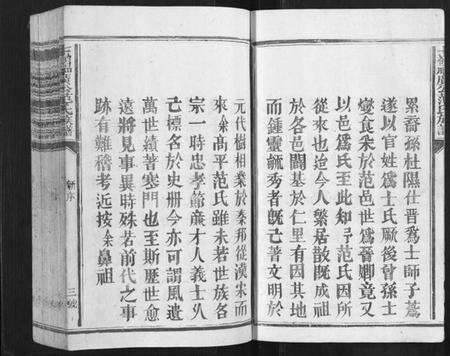 累裔孫杜隰仕晉爲士師子蒍
遂以官姓爲士氏厥後曾孫士
燮食采於范邑世爲晉卿竟又
以邑爲氏至此知予范氏因所
從來也迨今人繁居散既成祖
於各邑闢基於仁里有因其地
而鍾靈毓秀者既已著文明於
元代樹相業於秦邦從漢宋而
來余高平范氏雖未若世族各
宗一時忠孝節廉才人義士久
已標名於史册今亦可謂風遺
萬世績著寰門也至斯歷世愈
遠將見事異時殊若前代之事
跡有難稽考近按余鼻祖
三號